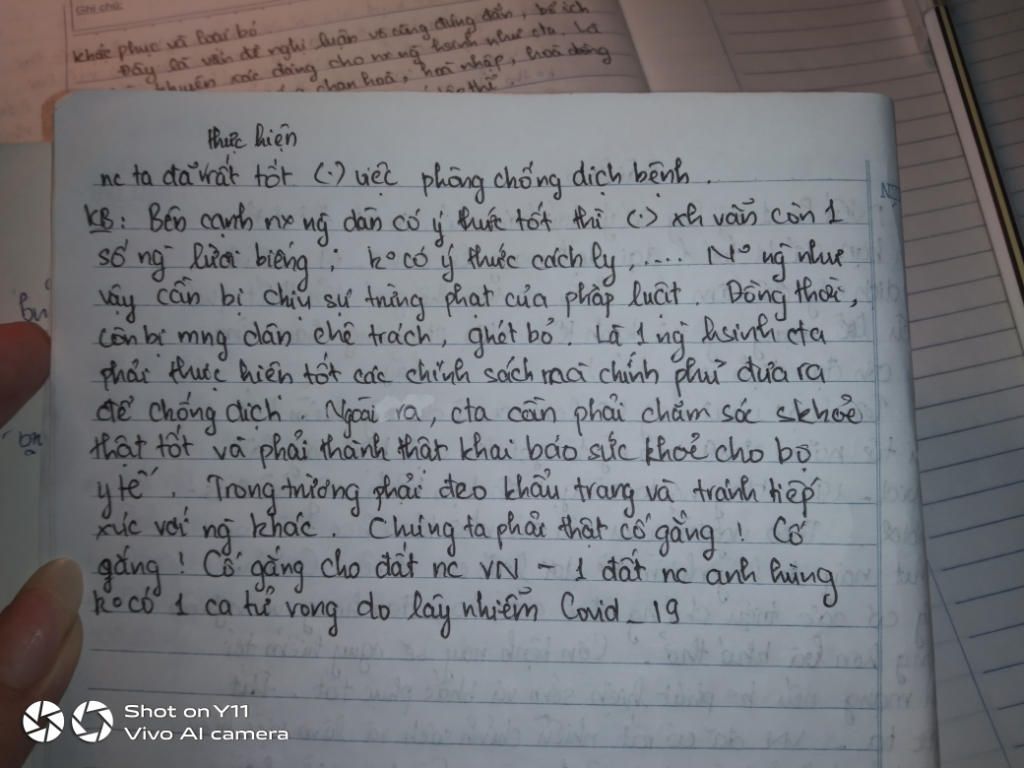 Ghi chú:
khắc phục và loại bỏ
Đây là vấn đề nghị luận vô cùng đúng đắn, bổ ích
khuyên xác đáng cho nx ng hsinh như cta. Là
chan hoà, hoà nhập, hoà đồng
thực hiện
nc ta đã rất tốt (.) việc phòng chống dịch bệnh.
KB: Bên cạnh nx ng dân có ý thức tốt thì (.) xh vẫn còn 1
số ng lười biếng, k° có ý thức cách ly, .... N° ng như
vậy cần bị chịu sự trừng phạt của pháp luật. Đồng thời,
còn bị mng dân chê trách, ghét bỏ. Là 1 ng hsinh cta
phải thực hiện tốt các chính sách mà chính phủ đưa ra
để chống dịch. Ngoài ra, cta cần phải chăm sóc skhoẻ
thật tốt và phải thành thật khai báo sức khoẻ cho bộ
y tế. Trong trường phải đeo khẩu trang và tránh tiếp
xúc với ng khác. Chúng ta phải thật cố gắng! Cố
gắng! Cố gắng cho đất nc VN - 1 đất nc anh hùng
k° có 1 ca tử vong do lây nhiễm Covid_19
Shot on Y11
Vivo AI camera